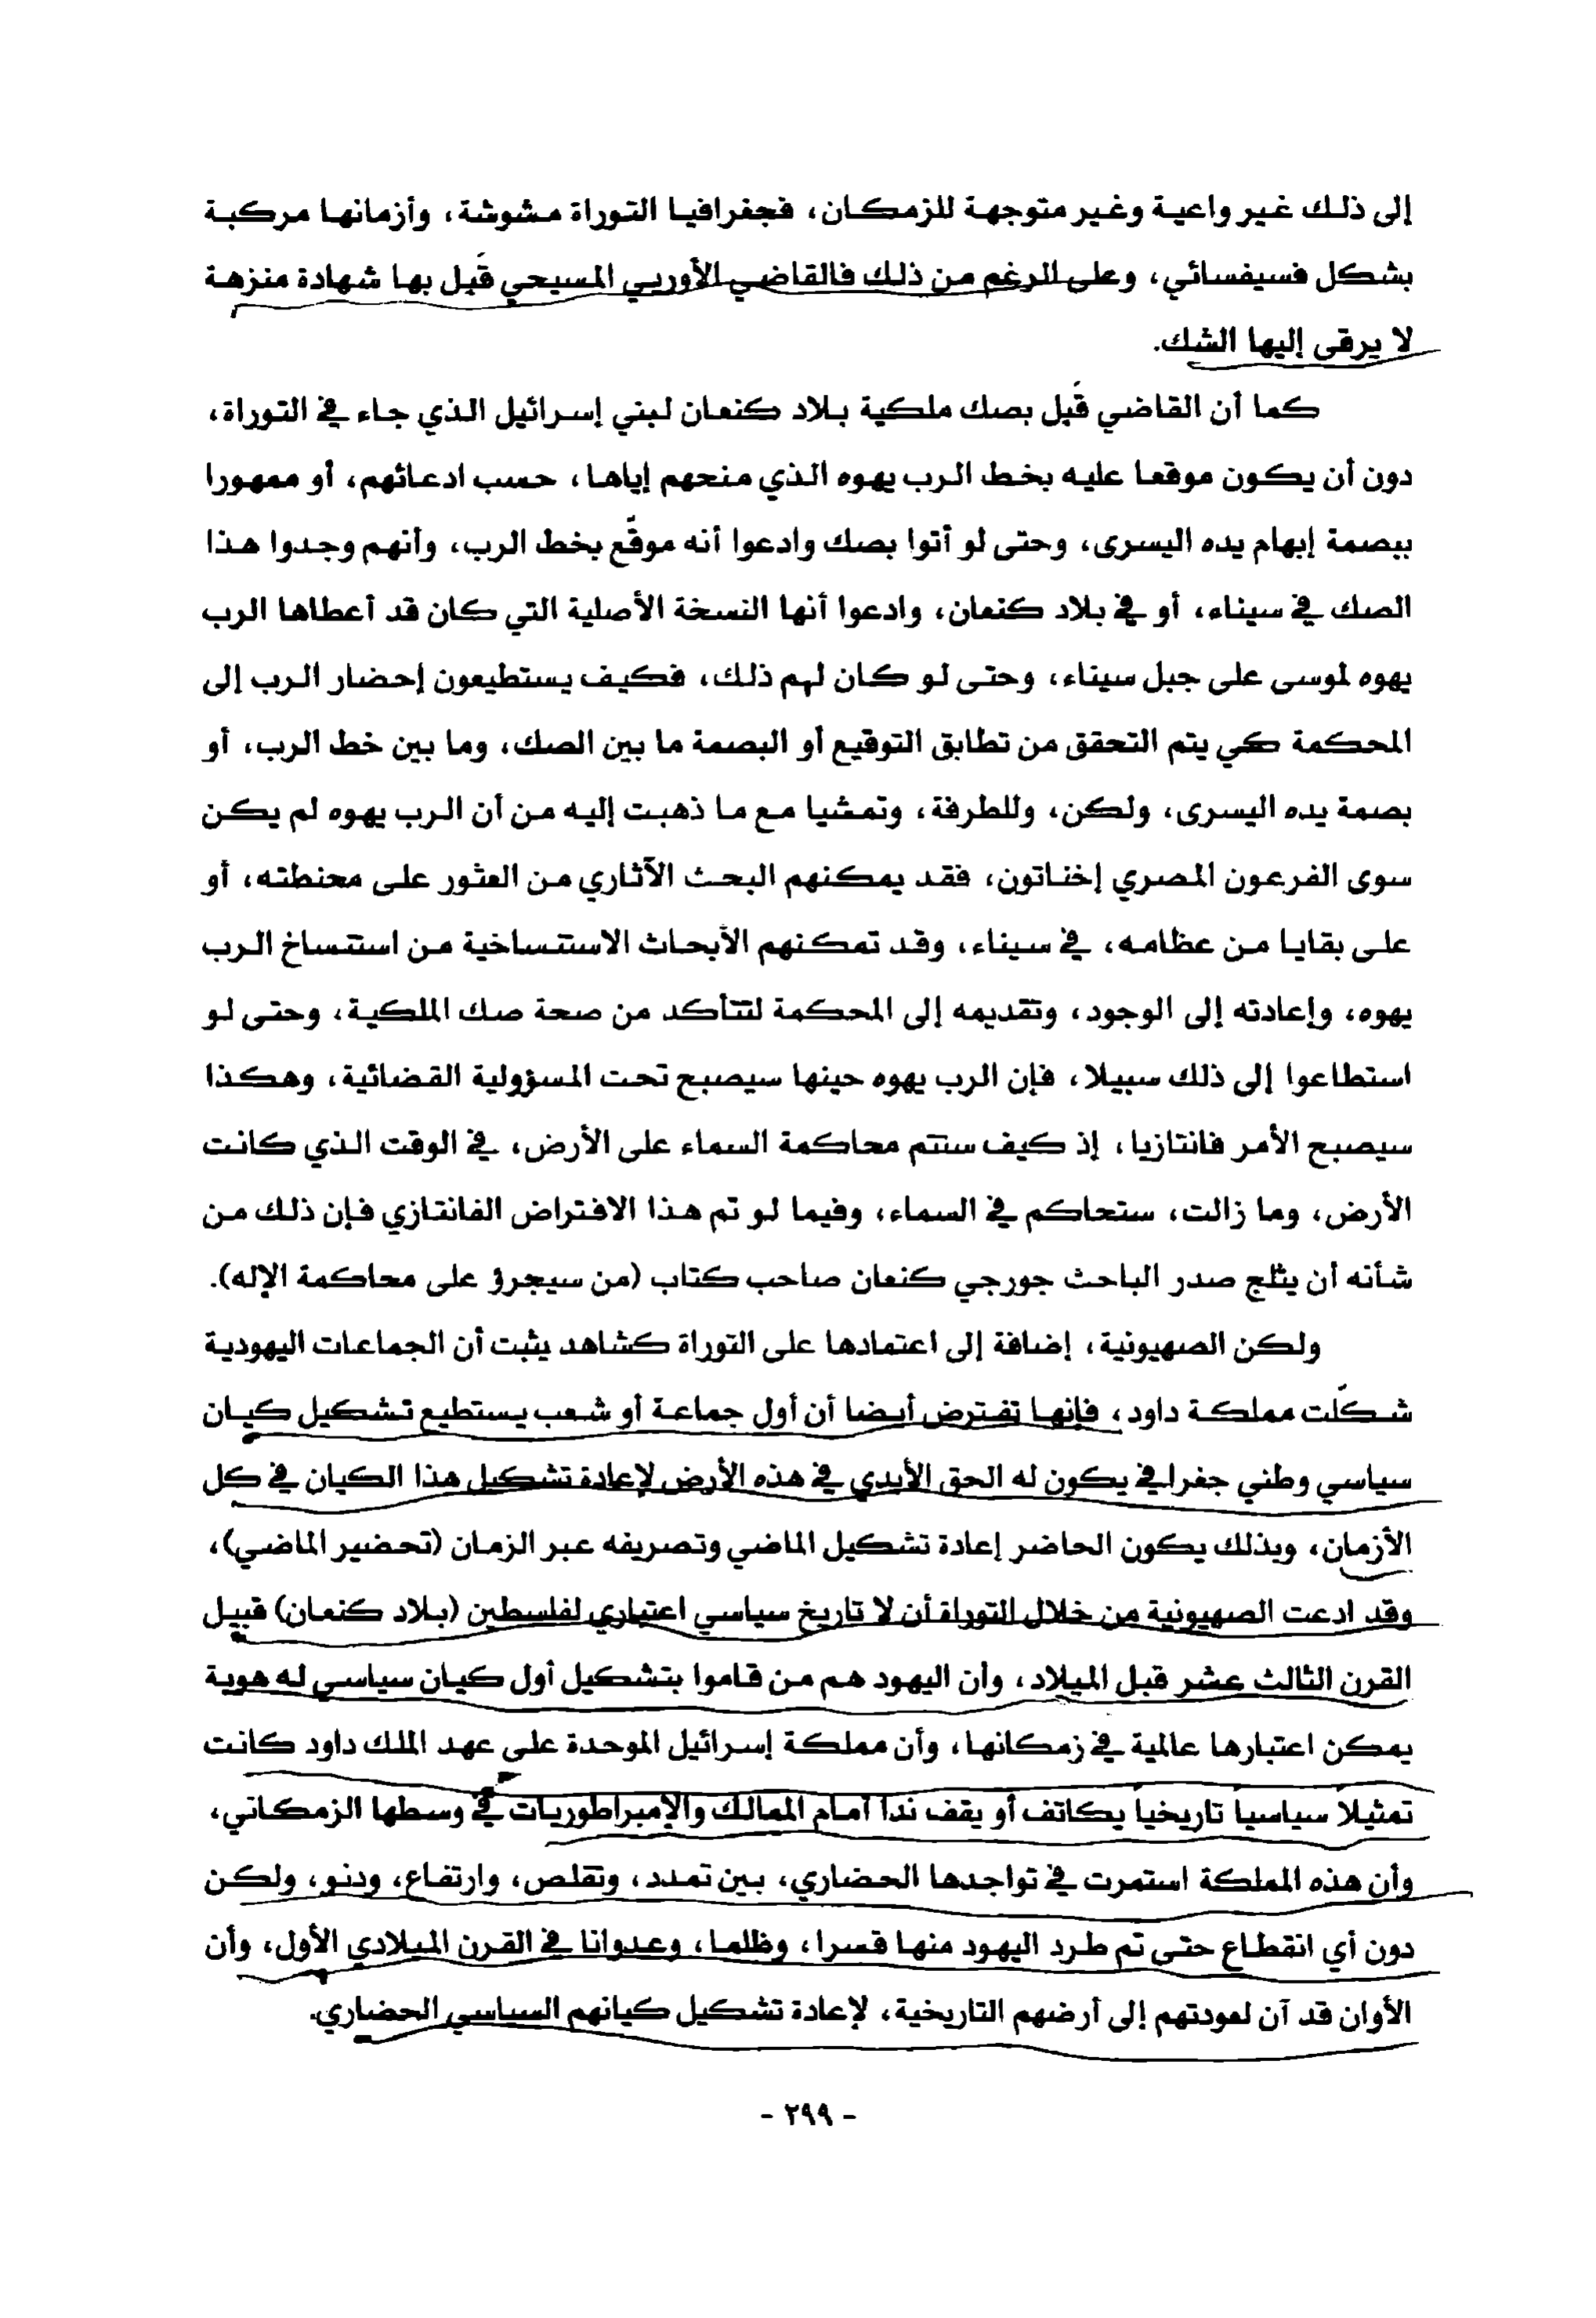 إلى ذلك غير واعية وغير متوجهة للزمكان، فجغرافيا التوراة مشوشة، وأزمانها مركبة
بشكل فسيفسائي، وعلى الرغم من ذلك فالقاضي الأوربي المسيحي قَبل بها شهادة منزهة
لا يرقى إليها الشك.
كما أن القاضي قَبل بصك ملكية بلاد كنعان لبني إسرائيل الذي جاء في التوراة،
دون أن يكون موقعا عليه بخط الرب يهوه الذي منحهم إياها، حسب ادعائهم، أو ممهورا
ببصمة إبهام يده اليسرى، وحتى لو أتوا بصك وادعوا أنه موقّع بخط الرب، وأنهم وجدوا هذا
الصك في سيناء، أو في بلاد كنعان، وادعوا أنها النسخة الأصلية التي كان قد أعطاها الرب
يهوه لموسى على جبل سيناء، وحتى لو كان لهم ذلك، فكيف يستطيعون إحضار الرب إلى
المحكمة كي يتم التحقق من تطابق التوقيع أو البصمة ما بين الصك، وما بين خط الرب، أو
بصمة يده اليسرى، ولكن، وللطرفة، وتمشيا مع ما ذهبت إليه من أن الرب يهوه لم يكن
سوى الفرعون المصري إخناتون، فقد يمكنهم البحث الآثاري من العثور على محنطته، أو
على بقايا من عظامه، في سيناء، وقد تمكنهم الأبحاث الاستنساخية من استنساخ الرب
يهوه، وإعادته إلى الوجود، وتقديمه إلى المحكمة لتتأكد من صحة صك الملكية، وحتى لو
استطاعوا إلى ذلك سبيلا، فإن الرب يهوه حينها سيصبح تحت المسؤولية القضائية، وهكذا
سيصبح الأمر فانتازيا، إذ كيف ستتم محاكمة السماء على الأرض، في الوقت الذي كانت
الأرض، وما زالت، ستحاكم في السماء، وفيما لو تم هذا الافتراض الفانتازي فإن ذلك من
شأنه أن يثلج صدر الباحث جورجي كنعان صاحب كتاب (من سيجرؤ على محاكمة الإله).
ولكن الصهيونية، إضافة إلى اعتمادها على التوراة كشاهد يثبت أن الجماعات اليهودية
شكّلت مملكة داود، فإنها تفترض أيضا أن أول جماعة أو شعب يستطيع تشكيل كيان
سياسي وطني جغرافي يكون له الحق الأبدي في هذه الأرض لإعادة تشكيل هذا الكيان في كل
الأزمان، وبذلك يكون الحاضر إعادة تشكيل الماضي وتصريفه عبر الزمان (تحضير الماضي)،
وقد ادعت الصهيونية من خلال التوراة أن لا تاريخ سياسي اعتباري لفلسطين (بلاد كنعان) قبيل
القرن الثالث عشر قبل الميلاد، وأن اليهود هم من قاموا بتشكيل أول كيان سياسي له هوية
يمكن اعتبارها عالمية في زمكانها، وأن مملكة إسرائيل الموحدة على عهد الملك داود كانت
تمثيلا سياسيا تاريخيا يكاتف أو يقف ندا أمام الممالك والإمبراطوريات في وسطها الزمكاني،
وأن هذه المملكة استمرت في تواجدها الحضاري، بين تمدد، وتقلص، وارتفاع، ودنو، ولكن
دون أي انقطاع حتى تم طرد اليهود منها قسرا، وظلما، وعدوانا في القرن الميلادي الأول، وأن
الأوان قد آن لعودتهم إلى أرضهم التاريخية، لإعادة تشكيل كيانهم السياسي الحضاري.
- ٢٩٩ -